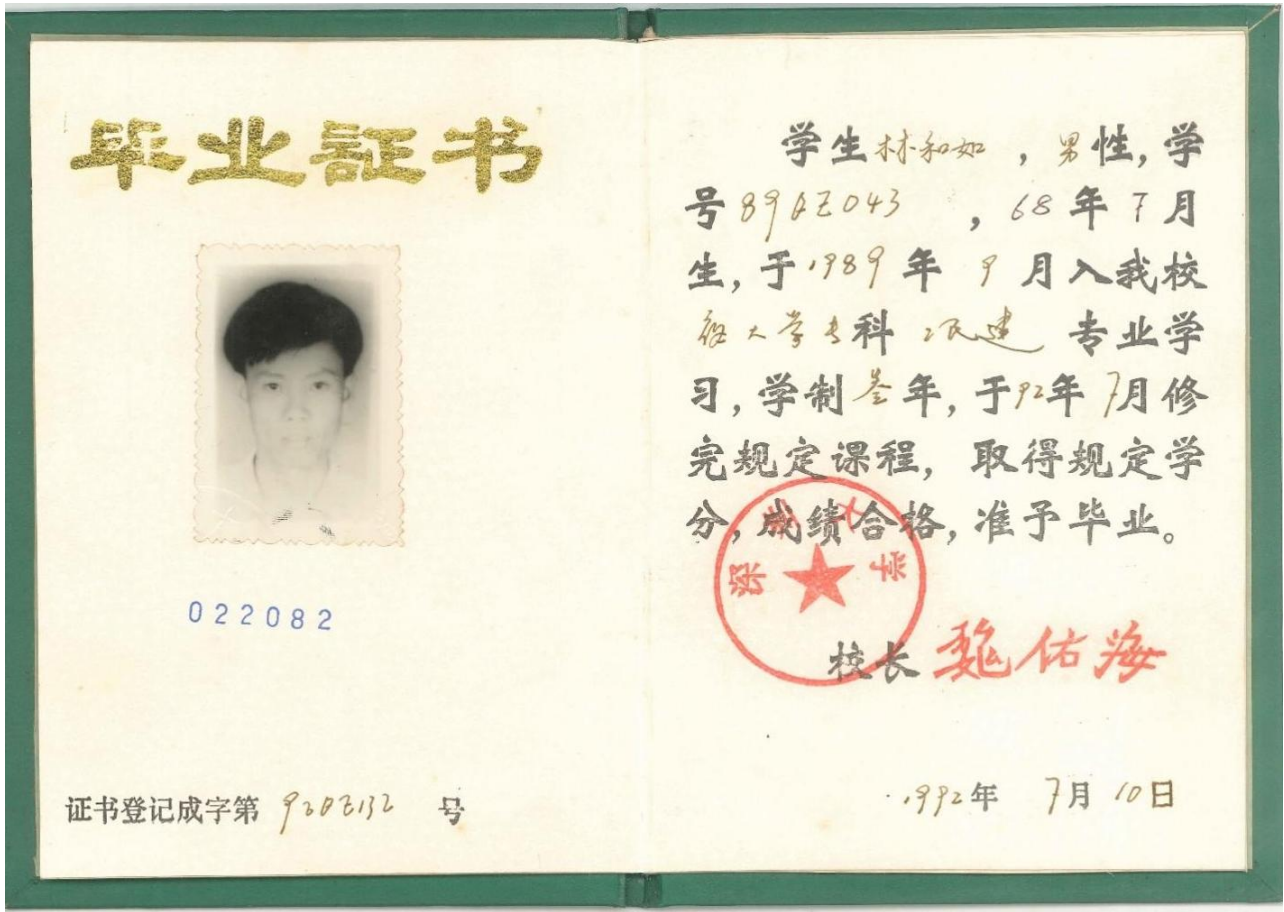 毕业証书
022082
证书登记成字第 920Z132 号
学生林和如，男性，学
号89QZ043，68年7月
生，于1989年9月入我校
大学专科 专业学
习，学制叁年，于92年7月修
完规定课程，取得规定学
分，成绩合格，准予毕业。
深圳大学
校长 魏佑海
1992年 7月 10日